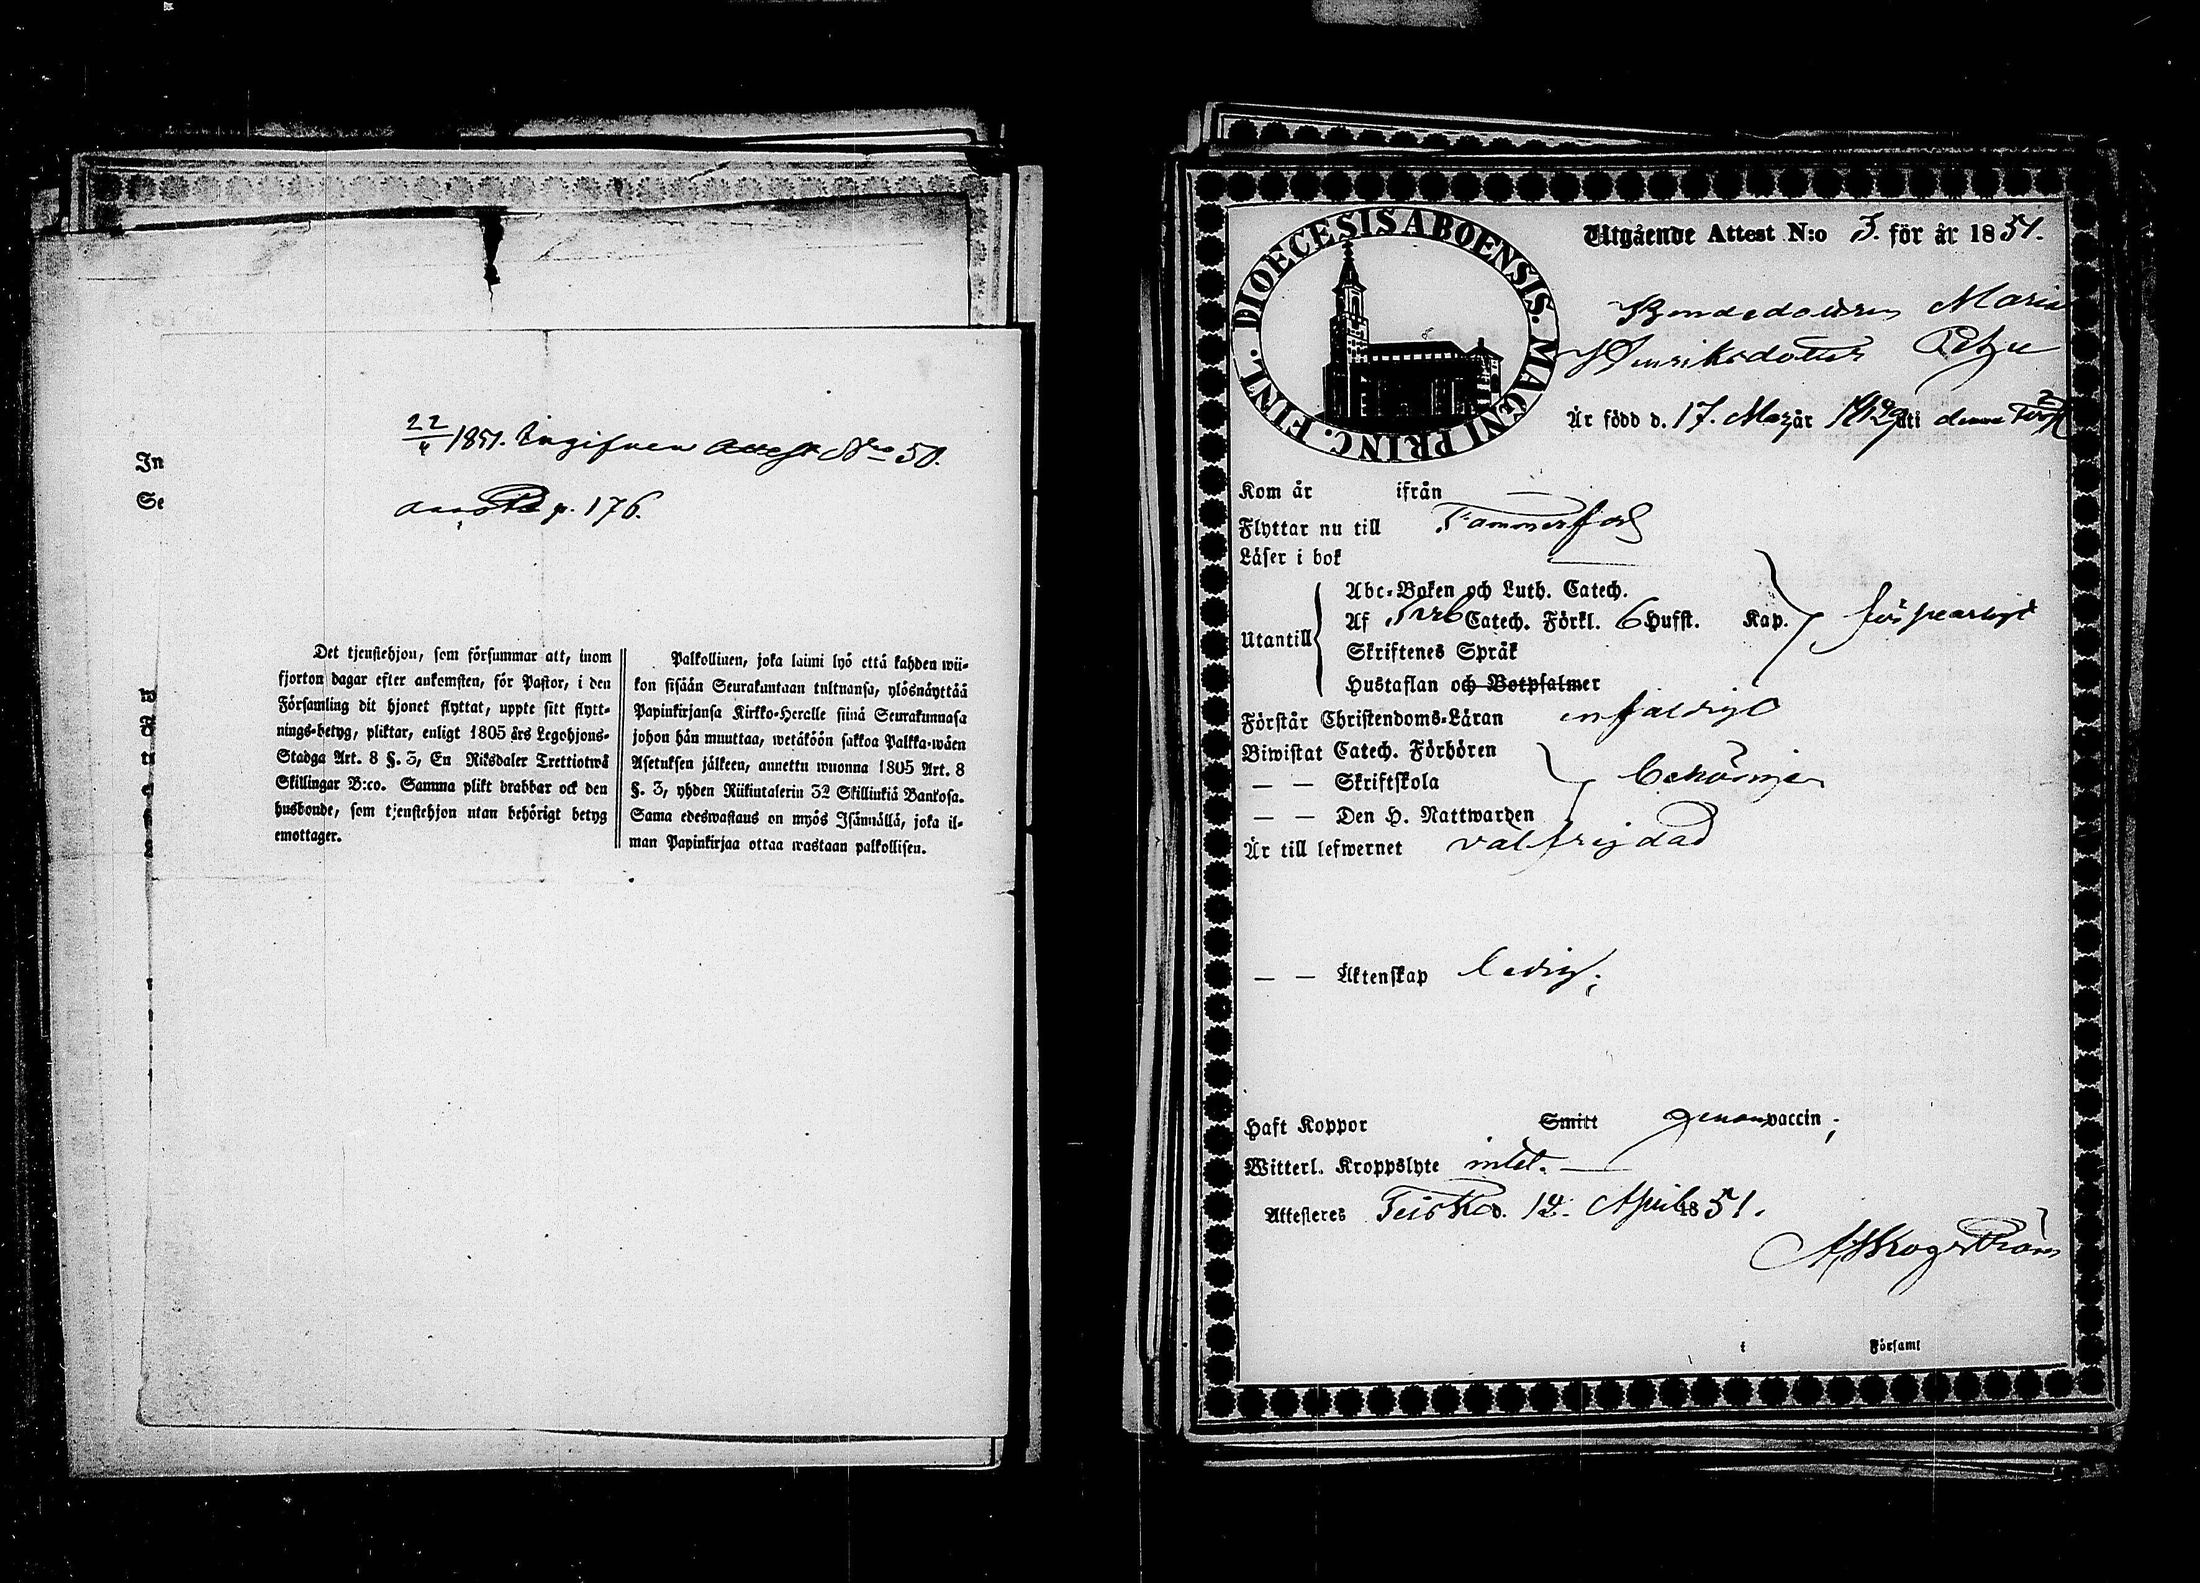 22/4 1851. Ingifven attest No 50.
p. 176.
In
Se
Det tjenstehjon, som försummar att, inom
fjorton dagar efter ankomsten, för Pastor, i den
Församling dit hjonet flyttat, uppte sitt flytt-
nings-betyg, pliktar, enligt 1805 års Legohjons-
Stadga Art. 8 §. 3, En Riksdaler Trettiotwå
Skillingar B:co. Samma plikt drabbar ock den
husbonde, som tjenstehjon utan behörigt betyg
emottager.
Palkollinen, joka laimi lyö että kahden wii-
kon sisään Seurakuntaan tultuansa, ylösnäyttää
Papinkirjansa Kirkko-Heralle siinä Seurakunnasa
johon hän muuttaa, wetäköön sakkoa Palkka-wäen
Asetuksen jälkeen, annettu wuonna 1805 Art. 8
§. 3, yhden Riikintalerin 32 Skillinkiä Bankosa.
Sama edeswastaus on myös Isännällä, joka il-
man Papinkirjaa ottaa wastaan palkollisen.
DIOECESIS ABOENSIS. MAGNI PRINC. FINL.
Utgående Attest N:o 3. för år 1851.
Bondedottren Maria
Henriksdotter
Är född d. 17. Maj år
Kom år ifrån —
Flyttar nu till Tammerfors
Läser i bok —
Utantill
Abc-Boken och Luth. Catech.
Af Catech. Förkl. 6 Hufst. Kap. försvarligt
Skriftenes Språk
Hustaflan och Botpsalmer
Förstår Christendoms-Läran enfaldigt
Biwistat Catech. Förhören
— — Skriftskola behörigen
— — Den H. Nattwarden
Är till lefwernet välfrejdad
— — Äktenskap ledig;
Haft Koppor Smitt genom vaccin;
Witterl. Kroppslyte intet. —
Attesteres Teisko d. 12. April 1851.
A Skogström
i Församl